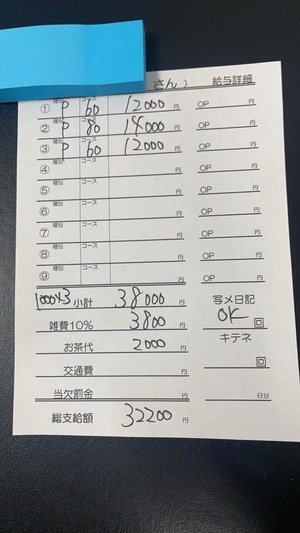 さん) 給与詳細
① 種別 P コース 60 12000円 OP 円
② 種別 P コース 80 14000円 OP 円
③ 種別 P コース 60 12000円 OP 円
④ 種別 コース 円 OP 円
⑤ 種別 コース 円 OP 円
⑥ 種別 コース 円 OP 円
⑦ 種別 コース 円 OP 円
⑧ 種別 コース 円 OP 円
⑨ 種別 コース 円 OP 円
1000×3 小計 38000 円 写メ日記
雑費10% 3800 円 OK 回
お茶代 2000 円 キテネ
交通費 円 回
当欠罰金 円 日分
総支給額 32200 円